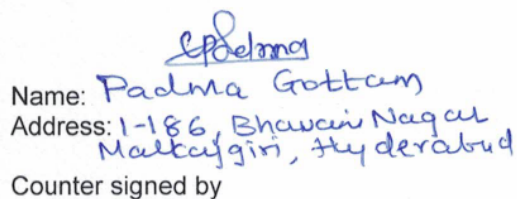 Name: Padma Gottam
Address: 1-186, Bhavani Nagar
Malkajgiri, Hyderabad
Counter signed by